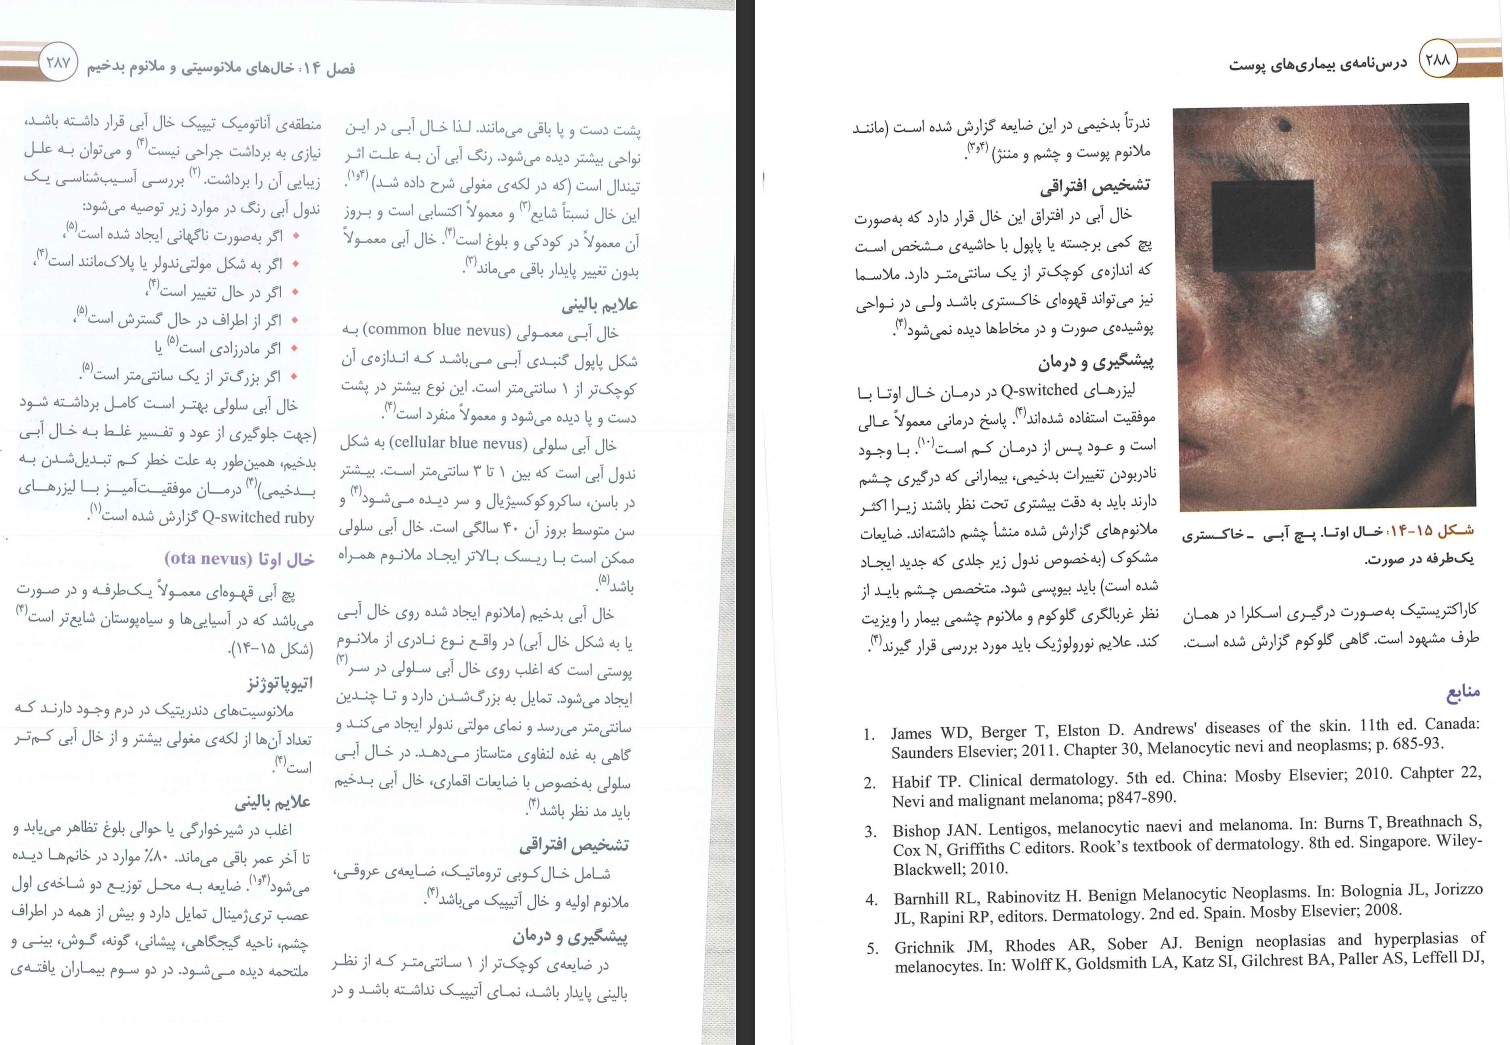 فصل ۱۴: خال‌های ملانوسیتی و ملانوم بدخیم
۲۸۷
پشت دست و پا باقی می‌مانند. لذا خال آبی در این
نواحی بیشتر دیده می‌شود. رنگ آبی آن به علت اثر
تیندال است (که در لکه‌ی مغولی شرح داده شد)(۱و۴).
این خال نسبتاً شایع(۳) و معمولاً اکتسابی است و بروز
آن معمولاً در کودکی و بلوغ است(۴). خال آبی معمولاً
بدون تغییر پایدار باقی می‌ماند(۳).
علایم بالینی
خال آبی معمولی (common blue nevus) به
شکل پاپول گنبدی آبی می‌باشد که اندازه‌ی آن
کوچک‌تر از ۱ سانتی‌متر است. این نوع بیشتر در پشت
دست و پا دیده می‌شود و معمولاً منفرد است(۴).
خال آبی سلولی (cellular blue nevus) به شکل
ندول آبی است که بین ۱ تا ۳ سانتی‌متر است. بیشتر
در باسن، ساکروکوکسیژیال و سر دیده می‌شود(۴) و
سن متوسط بروز آن ۴۰ سالگی است. خال آبی سلولی
ممکن است با ریسک بالاتر ایجاد ملانوم همراه
باشد(۵).
خال آبی بدخیم (ملانوم ایجاد شده روی خال آبی
یا به شکل خال آبی) در واقع نوع نادری از ملانوم
پوستی است که اغلب روی خال آبی سلولی در سر(۳)
ایجاد می‌شود. تمایل به بزرگ‌شدن دارد و تا چندین
سانتی‌متر می‌رسد و نمای مولتی ندولر ایجاد می‌کند و
گاهی به غده لنفاوی متاستاز می‌دهد. در خال آبی
سلولی به‌خصوص با ضایعات اقماری، خال آبی بدخیم
باید مد نظر باشد(۴).
تشخیص افتراقی
شامل خال‌کوبی تروماتیک، ضایعه‌ی عروقی،
ملانوم اولیه و خال آتیپیک می‌باشد(۴).
پیشگیری و درمان
در ضایعه‌ی کوچک‌تر از ۱ سانتی‌متر که از نظر
بالینی پایدار باشد، نمای آتیپیک نداشته باشد و در
منطقه‌ی آناتومیک تیپیک خال آبی قرار داشته باشد،
نیازی به برداشت جراحی نیست(۴) و می‌توان به علل
زیبایی آن را برداشت.(۲) بررسی آسیب‌شناسی یک
ندول آبی رنگ در موارد زیر توصیه می‌شود:
♦ اگر به‌صورت ناگهانی ایجاد شده است(۵)،
♦ اگر به شکل مولتی‌ندولر یا پلاک‌مانند است(۴)،
♦ اگر در حال تغییر است(۴)،
♦ اگر از اطراف در حال گسترش است(۵)،
♦ اگر مادرزادی است(۵) یا
♦ اگر بزرگ‌تر از یک سانتی‌متر است(۵).
خال آبی سلولی بهتر است کامل برداشته شود
(جهت جلوگیری از عود و تفسیر غلط به خال آبی
بدخیم، همین‌طور به علت خطر کم تبدیل‌شدن به
بدخیمی)(۴) درمان موفقیت‌آمیز با لیزرهای
Q-switched ruby گزارش شده است(۱).
خال اوتا (ota nevus)
پچ آبی قهوه‌ای معمولاً یک‌طرفه و در صورت
می‌باشد که در آسیایی‌ها و سیاه‌پوستان شایع‌تر است(۴)
(شکل ۱۵-۱۴).
اتیوپاتوژنز
ملانوسیت‌های دندریتیک در درم وجود دارند که
تعداد آن‌ها از لکه‌ی مغولی بیشتر و از خال آبی کم‌تر
است(۴).
علایم بالینی
اغلب در شیرخوارگی یا حوالی بلوغ تظاهر می‌یابد و
تا آخر عمر باقی می‌ماند. ۸۰٪ موارد در خانم‌ها دیده
می‌شود(۱و۴). ضایعه به محل توزیع دو شاخه‌ی اول
عصب تری‌ژمینال تمایل دارد و بیش از همه در اطراف
چشم، ناحیه گیجگاهی، پیشانی، گونه، گوش، بینی و
ملتحمه دیده می‌شود. در دو سوم بیماران یافته‌ی
درس‌نامه‌ی بیماری‌های پوست
۲۸۸
شکل ۱۵-۱۴: خال اوتا. پچ آبی - خاکستری
یک‌طرفه در صورت.
کاراکتریستیک به‌صورت درگیری اسکلرا در همان
طرف مشهود است. گاهی گلوکوم گزارش شده است.
ندرتاً بدخیمی در این ضایعه گزارش شده است (مانند
ملانوم پوست و چشم و مننژ) (۳و۴).
تشخیص افتراقی
خال آبی در افتراق این خال قرار دارد که به‌صورت
پچ کمی برجسته یا پاپول با حاشیه‌ی مشخص است
که اندازه‌ی کوچک‌تر از یک سانتی‌متر دارد. ملاسما
نیز می‌تواند قهوه‌ای خاکستری باشد ولی در نواحی
پوشیده‌ی صورت و در مخاط‌ها دیده نمی‌شود(۴).
پیشگیری و درمان
لیزرهای Q-switched در درمان خال اوتا با
موفقیت استفاده شده‌اند(۴). پاسخ درمانی معمولاً عالی
است و عود پس از درمان کم است(۱۰). با وجود
نادربودن تغییرات بدخیمی، بیمارانی که درگیری چشم
دارند باید به دقت بیشتری تحت نظر باشند زیرا اکثر
ملانوم‌های گزارش شده منشأ چشم داشته‌اند. ضایعات
مشکوک (به‌خصوص ندول زیر جلدی که جدید ایجاد
شده است) باید بیوپسی شود. متخصص چشم باید از
نظر غربالگری گلوکوم و ملانوم چشمی بیمار را ویزیت
کند. علایم نورولوژیک باید مورد بررسی قرار گیرند(۴).
منابع
1. James WD, Berger T, Elston D. Andrews' diseases of the skin. 11th ed. Canada:
Saunders Elsevier; 2011. Chapter 30, Melanocytic nevi and neoplasms; p. 685-93.
2. Habif TP. Clinical dermatology. 5th ed. China: Mosby Elsevier; 2010. Cahpter 22,
Nevi and malignant melanoma; p847-890.
3. Bishop JAN. Lentigos, melanocytic naevi and melanoma. In: Burns T, Breathnach S,
Cox N, Griffiths C editors. Rook's textbook of dermatology. 8th ed. Singapore. Wiley-
Blackwell; 2010.
4. Barnhill RL, Rabinovitz H. Benign Melanocytic Neoplasms. In: Bolognia JL, Jorizzo
JL, Rapini RP, editors. Dermatology. 2nd ed. Spain. Mosby Elsevier; 2008.
5. Grichnik JM, Rhodes AR, Sober AJ. Benign neoplasias and hyperplasias of
melanocytes. In: Wolff K, Goldsmith LA, Katz SI, Gilchrest BA, Paller AS, Leffell DJ,